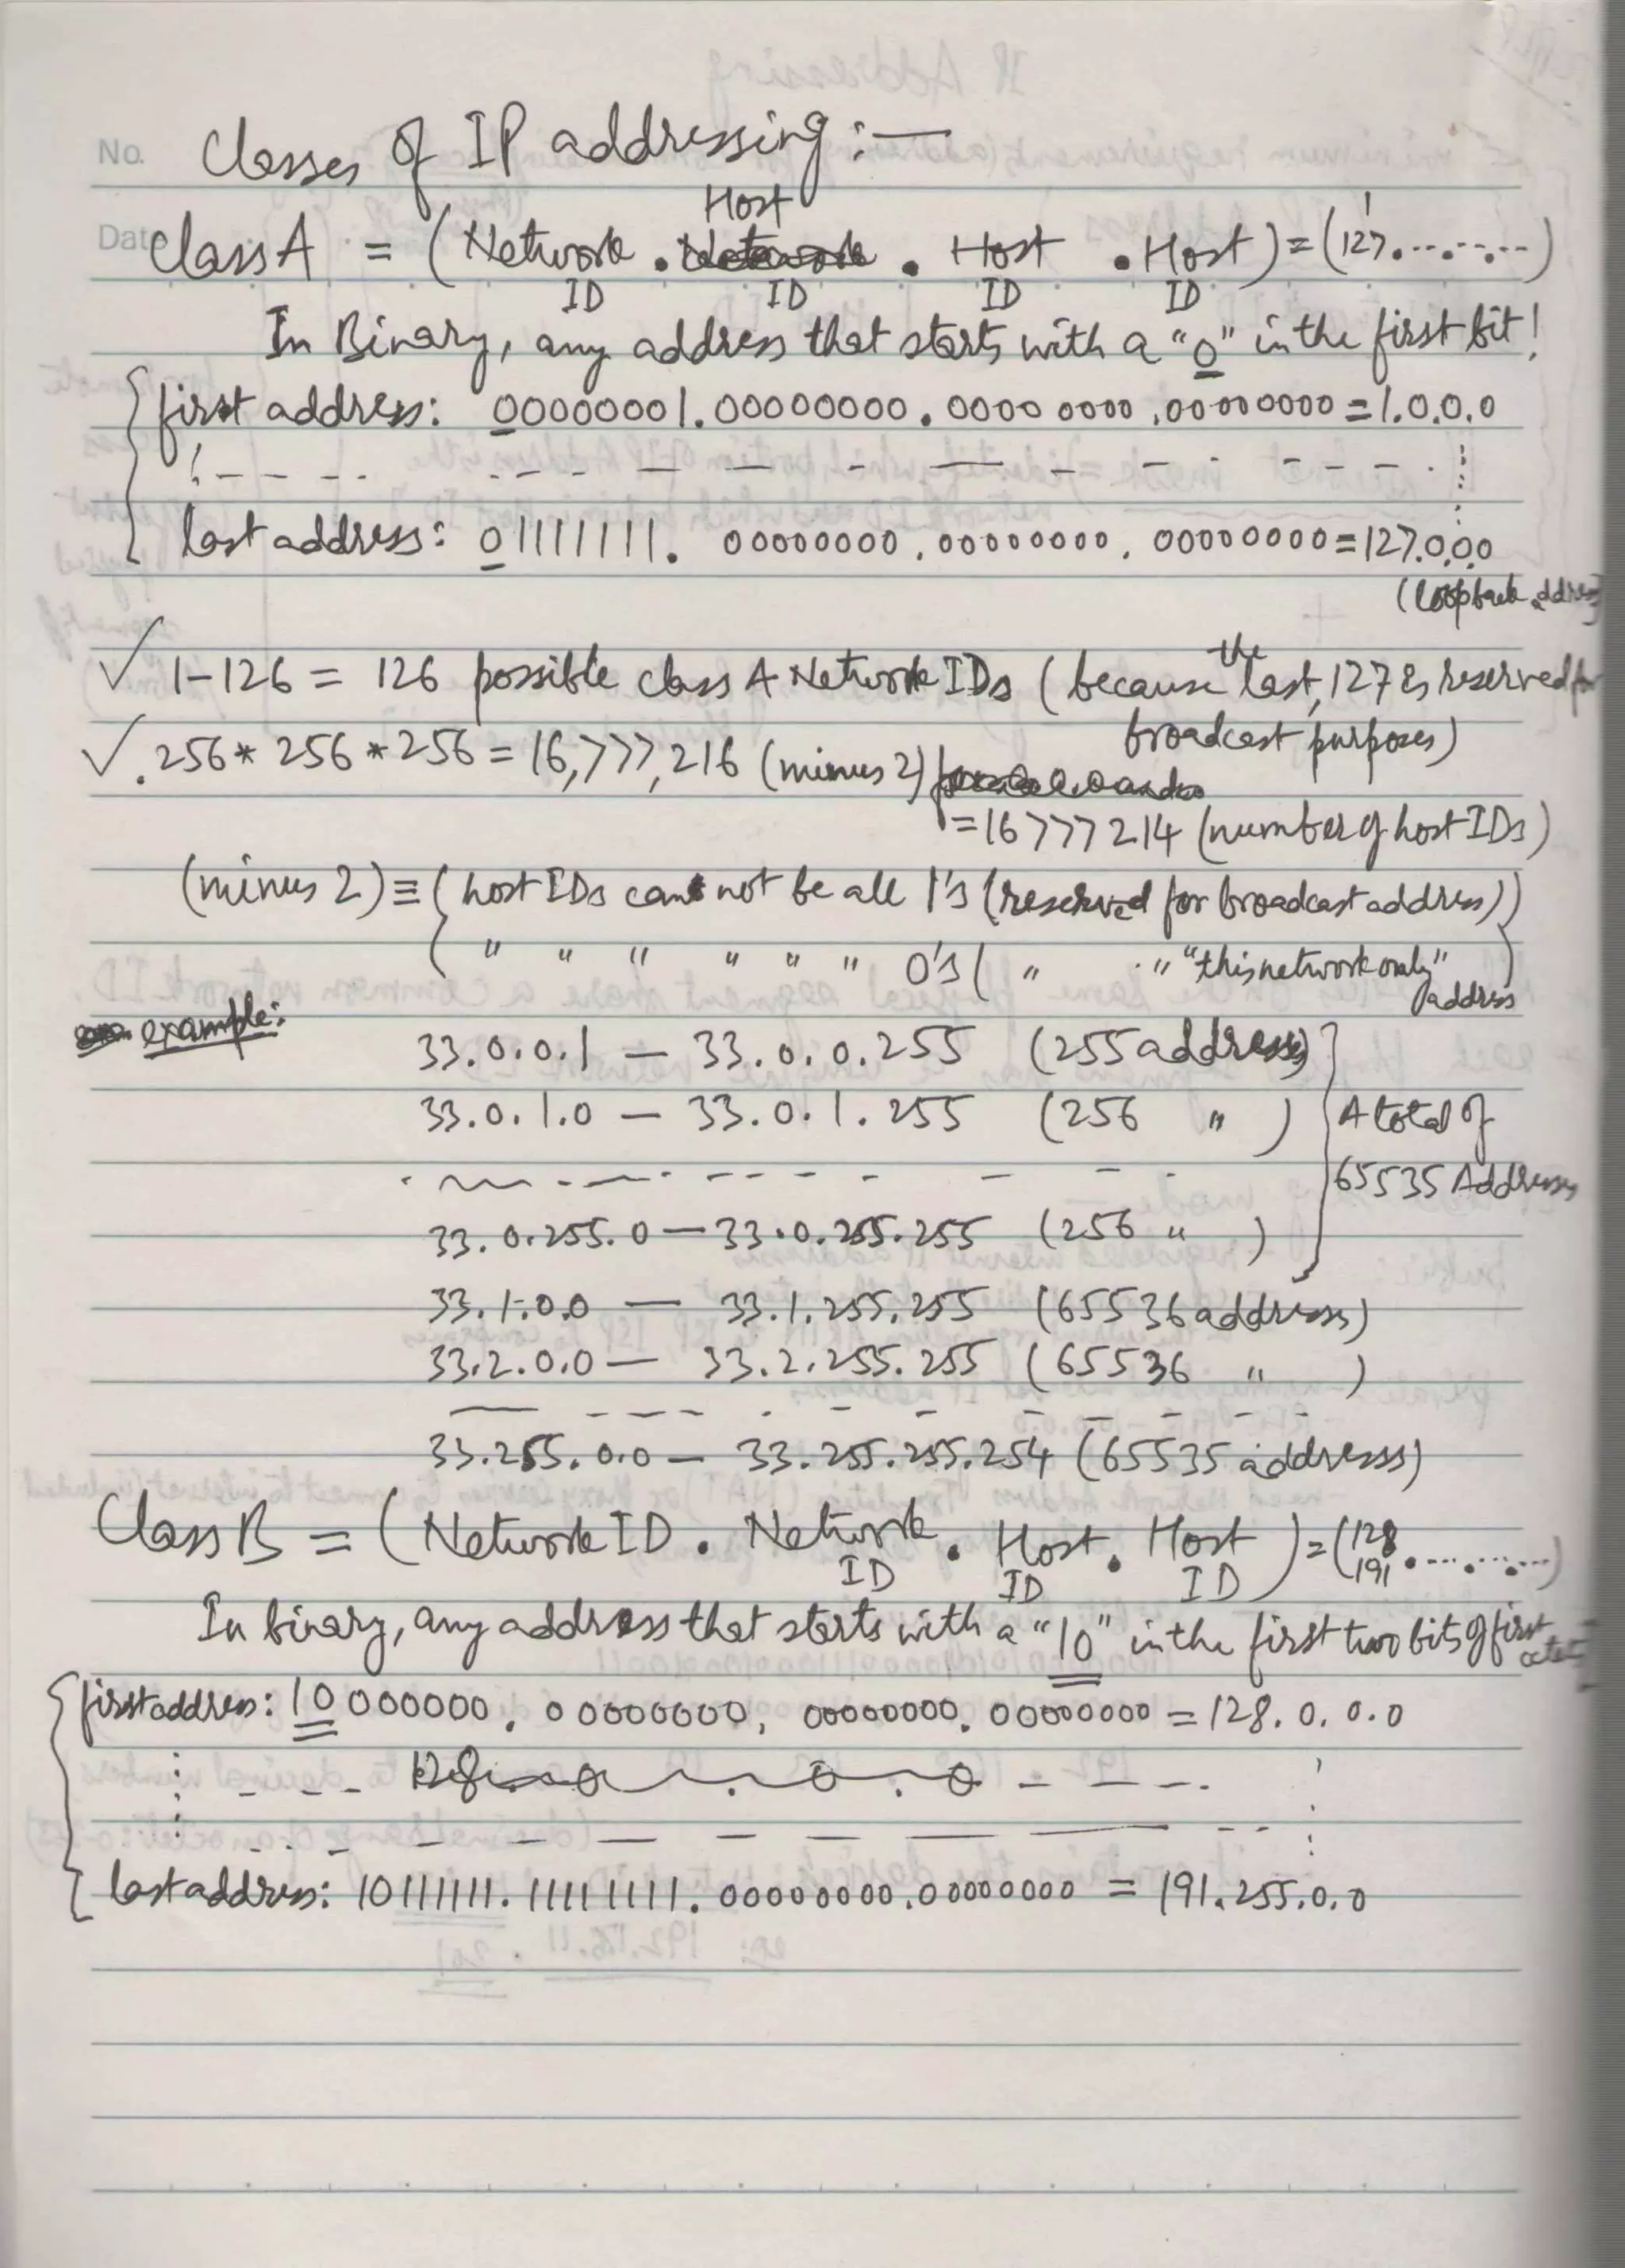 No.
Classes of IP addressing:—
Host
Date
Class A = (Network . Network . Host . Host) = (1 127. ... ... ...)
ID ID ID ID
In Binary, any address that starts with a "0" in the first bit!
first address: 00000001.00000000.00000000.00000000 = 1.0.0.0
last address: 01111111. 00000000.00000000. 00000000 = 127.0.0.0
(loopback address)
✓ 1-126 = 126 possible class A Network IDs (because the last, 127 is reserved for
broadcast purposes)
✓ .256 * 256 * 256 = 16,777,216 (minus 2)
= 16777214 (number of host IDs)
(minus 2) ≡ ( host IDs can not be all 1's (reserved for broadcast address))
" " " " " " 0's ( " " "this network only"
address
example:
33.0.0.1 — 33.0.0.255 (255 addresses)
33.0.1.0 — 33.0.1.255 (256 " ) A total of
65535 Addresses
33.0.255.0 — 33.0.255.255 (256 " )
33.1.0.0 — 33.1.255.255 (65536 address)
33.2.0.0 — 33.2.255.255 (65536 " )
33.255.0.0 — 33.255.255.254 (65535 addresss)
Class B = (Network ID . Network . Host . Host ) = (128 191 . ... ... ...)
ID ID ID
In binary, any address that starts with a "10" in the first two bits of first
octet
first address: 10000000. 00000000, 00000000. 00000000 = 128. 0. 0. 0
128. 0 . 0 . 0
last address: 10111111. 11111111. 00000000.00000000 = 191.255.0.0